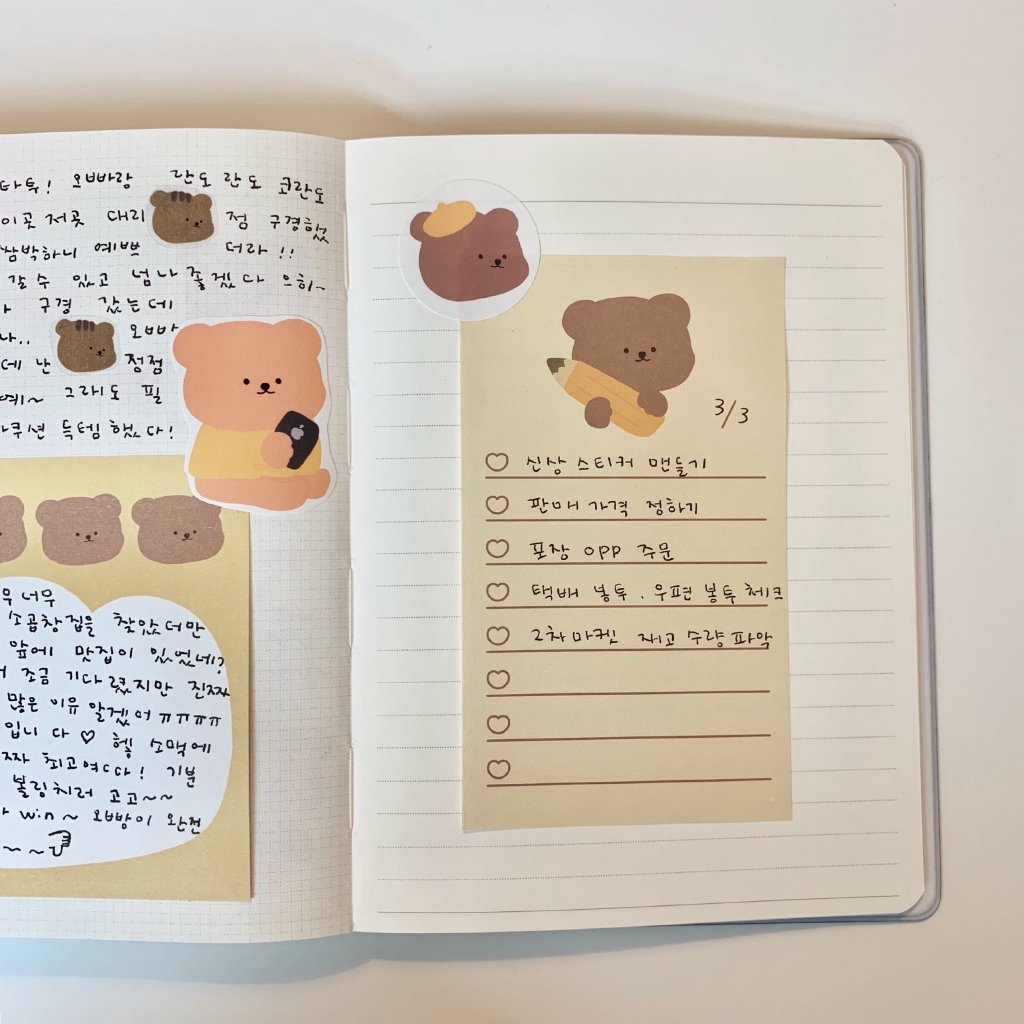 오빠랑 란도 란도 코란도
이곳저곳 대리 점 구경했
쌈박하니 예쁘 더라 !!
갈 수 있고 넘나 좋겠다 으히~
구경 갔는데
나.. 오빠
데 난 정점
예~ 그래도 필
득템 했다!
너무
소곱창집을 찾았더만
앞에 맛집이 있었네?
조금 기다렸지만 진짜
많은 이유 알겠어 ㅠㅠㅠㅠ
입니다 ♡ 헿 소맥에
최고여따! 기분
볼링치러 고고~~
win ~ 오빵이 완전
~ ~
3/3
신상 스티커 맨들기
판매 가격 정하기
포장 opp 주문
택배 봉투 . 우편 봉투 체크
2차 마켓 재고 수량 파악